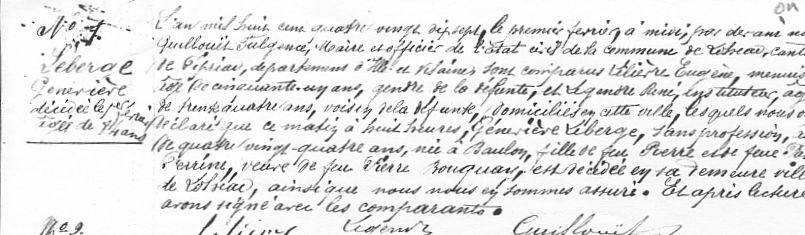 on
N° 1
Leberge
Geneviève
décédée le 1er février
âgée de 84 ans
L'an mil huit cent quatre vingt dix sept, le premier février à midi, par devant nous
Guillouët Fulgence, Maire et officier de l'état civil de la commune de Lohéac, cant
de Pipriac, département d'Ille et Vilaine sont comparus Eugène, menuis
âgé de cinquante-un ans, gendre de la défunte, et Legendre René, instituteur, âgé
de trente quatre ans, voisin de la défunte, domiciliés en cette ville, lesquels nous o
déclaré que ce matin à huit heures, Geneviève Leberge, sans profession, a
de quatre vingt-quatre ans, née à Baulon, fille de feu Pierre et de feue
Perrine, veuve de feu Pierre Bouquay, est décédée en sa demeure vill
de Lohéac, ainsi que nous nous en sommes assuré. Et après lecture
avons signé avec les comparants.
N° 2.
Legendre Guillouët